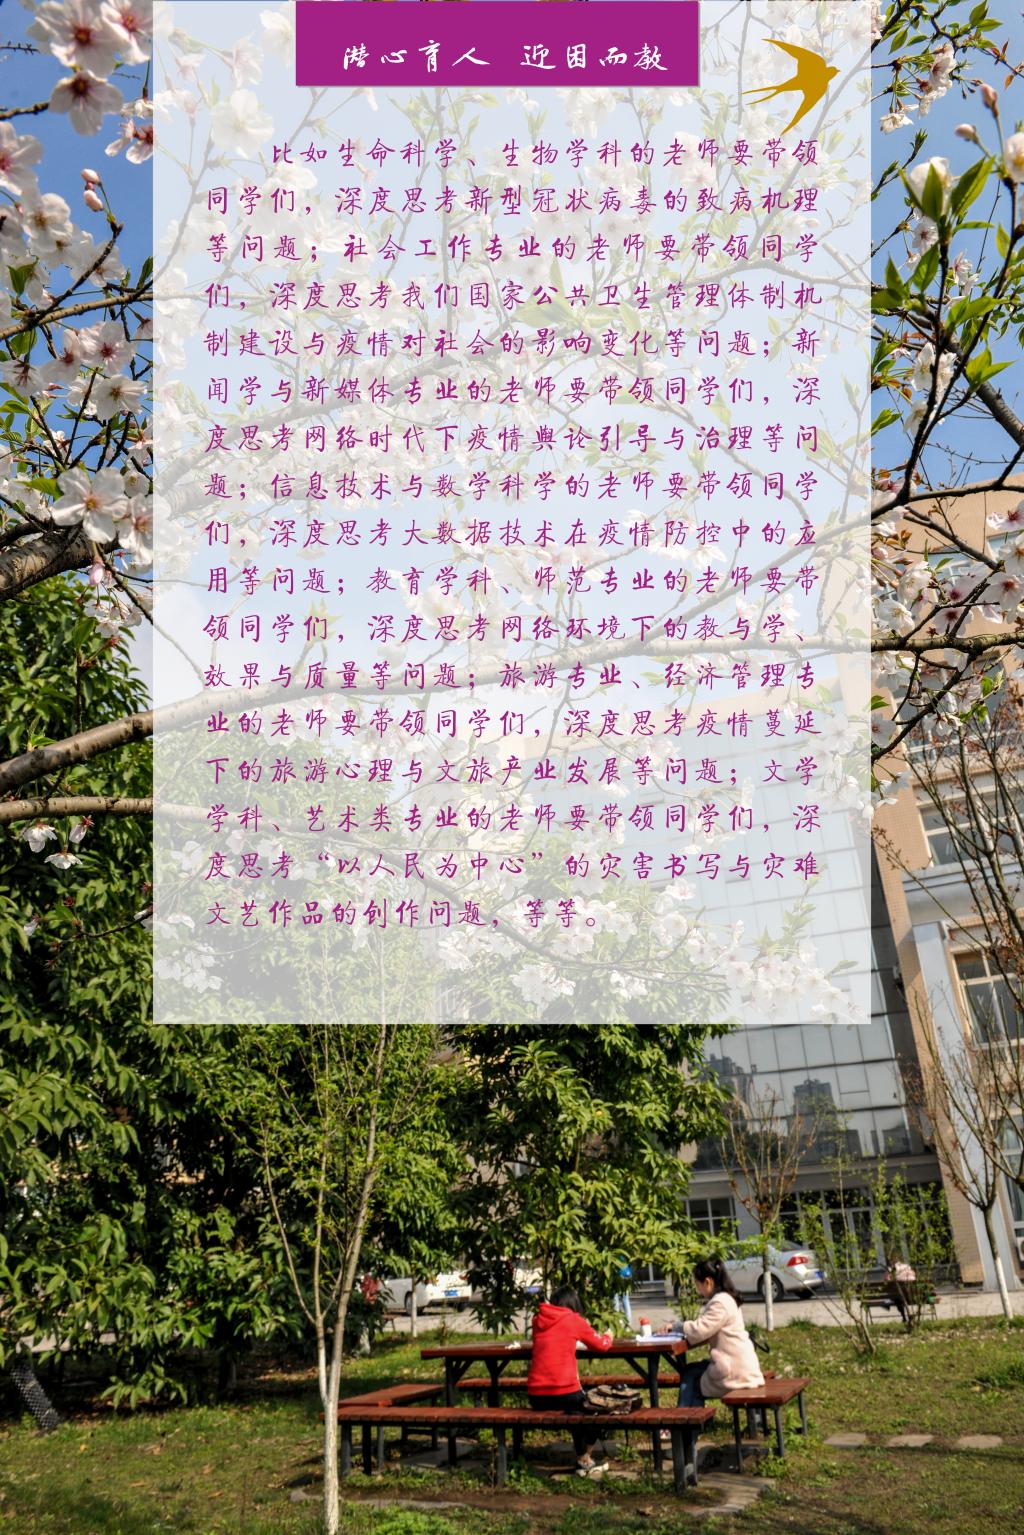 潜心育人 迎困而教
比如生命科学、生物学科的老师要带领
同学们，深度思考新型冠状病毒的致病机理
等问题；社会工作专业的老师要带领同学
们，深度思考我们国家公共卫生管理体制机
制建设与疫情对社会的影响变化等问题；新
闻学与新媒体专业的老师要带领同学们，深
度思考网络时代下疫情舆论引导与治理等问
题；信息技术与数学科学的老师要带领同学
们，深度思考大数据技术在疫情防控中的应
用等问题；教育学科、师范专业的老师要带
领同学们，深度思考网络环境下的教与学、
效果与质量等问题；旅游专业、经济管理专
业的老师要带领同学们，深度思考疫情蔓延
下的旅游心理与文旅产业发展等问题；文学
学科、艺术类专业的老师要带领同学们，深
度思考“以人民为中心”的灾害书写与灾难
文艺作品的创作问题，等等。